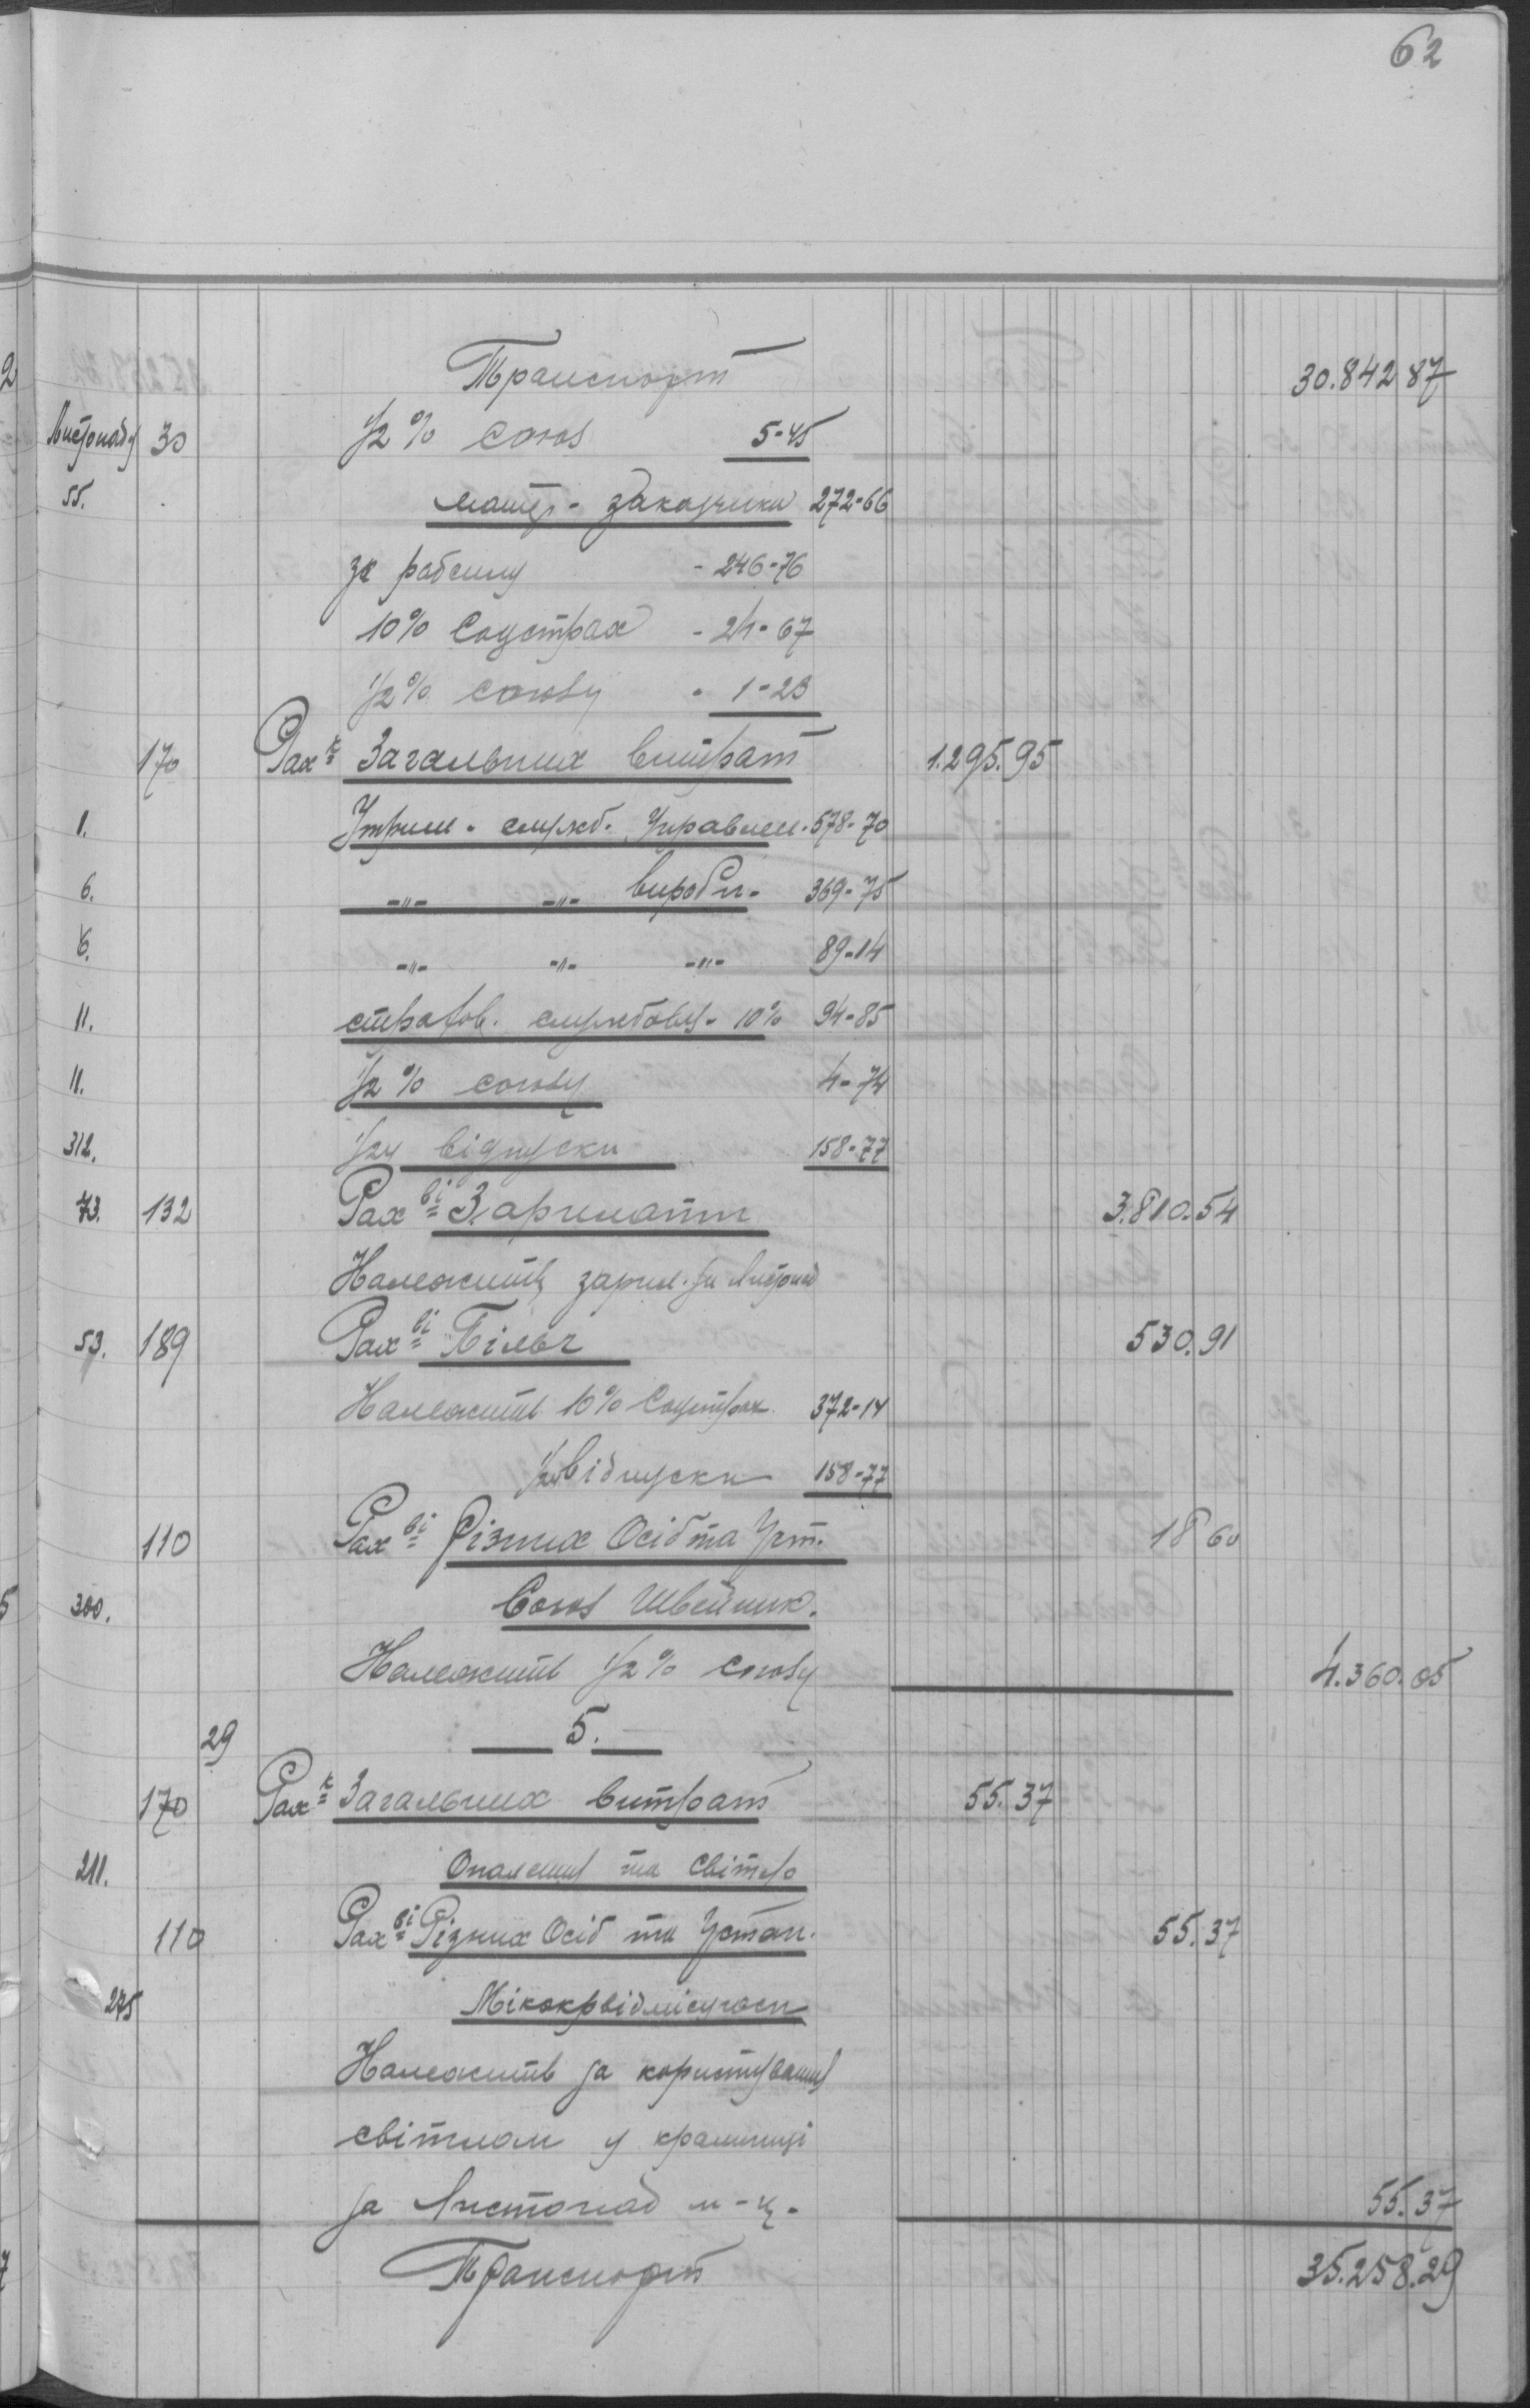 62
Транспорт 30.842 87
Листопад 30 1/2% союз 5-45
55. матер- заказчика 272-66
за работу - 246-76
10% Соцстрах - 24-67
1/2% союзу - 1-23
170 Рах-к Загальних витрат 1.295.95
1. Утрим. служб. Управлен. 578-70
6. -"- -"- вироби- 369-75
6. -"- -"- -"- 89-14
11. страхов. службовц- 10% 94-85
11. 1/2% союзу 4-74
312. 1/24 відпуски 158-77
73. 132 Рах-ві Зарплати 3.810.54
Належить зарпл. за Листопад
53. 189 Рах-ві 530.91
Належить 10% Соцстрах 372-14
1/24 відпуски 158-77
110 Рах-ві Різних Осіб та Уст. 18 60
300. Союз Швейник.
Належить 1/2% союзу 4.360.05
29 5.
170 Рах-к Загальних витрат 55.37
211. Опалення та світло
110 Рах-ві Різних Осіб та Устан. 55.37
275
Належить за користування
світлом у крамниці
за Листопад м-ц- 55.37
Транспорт 35.258.29